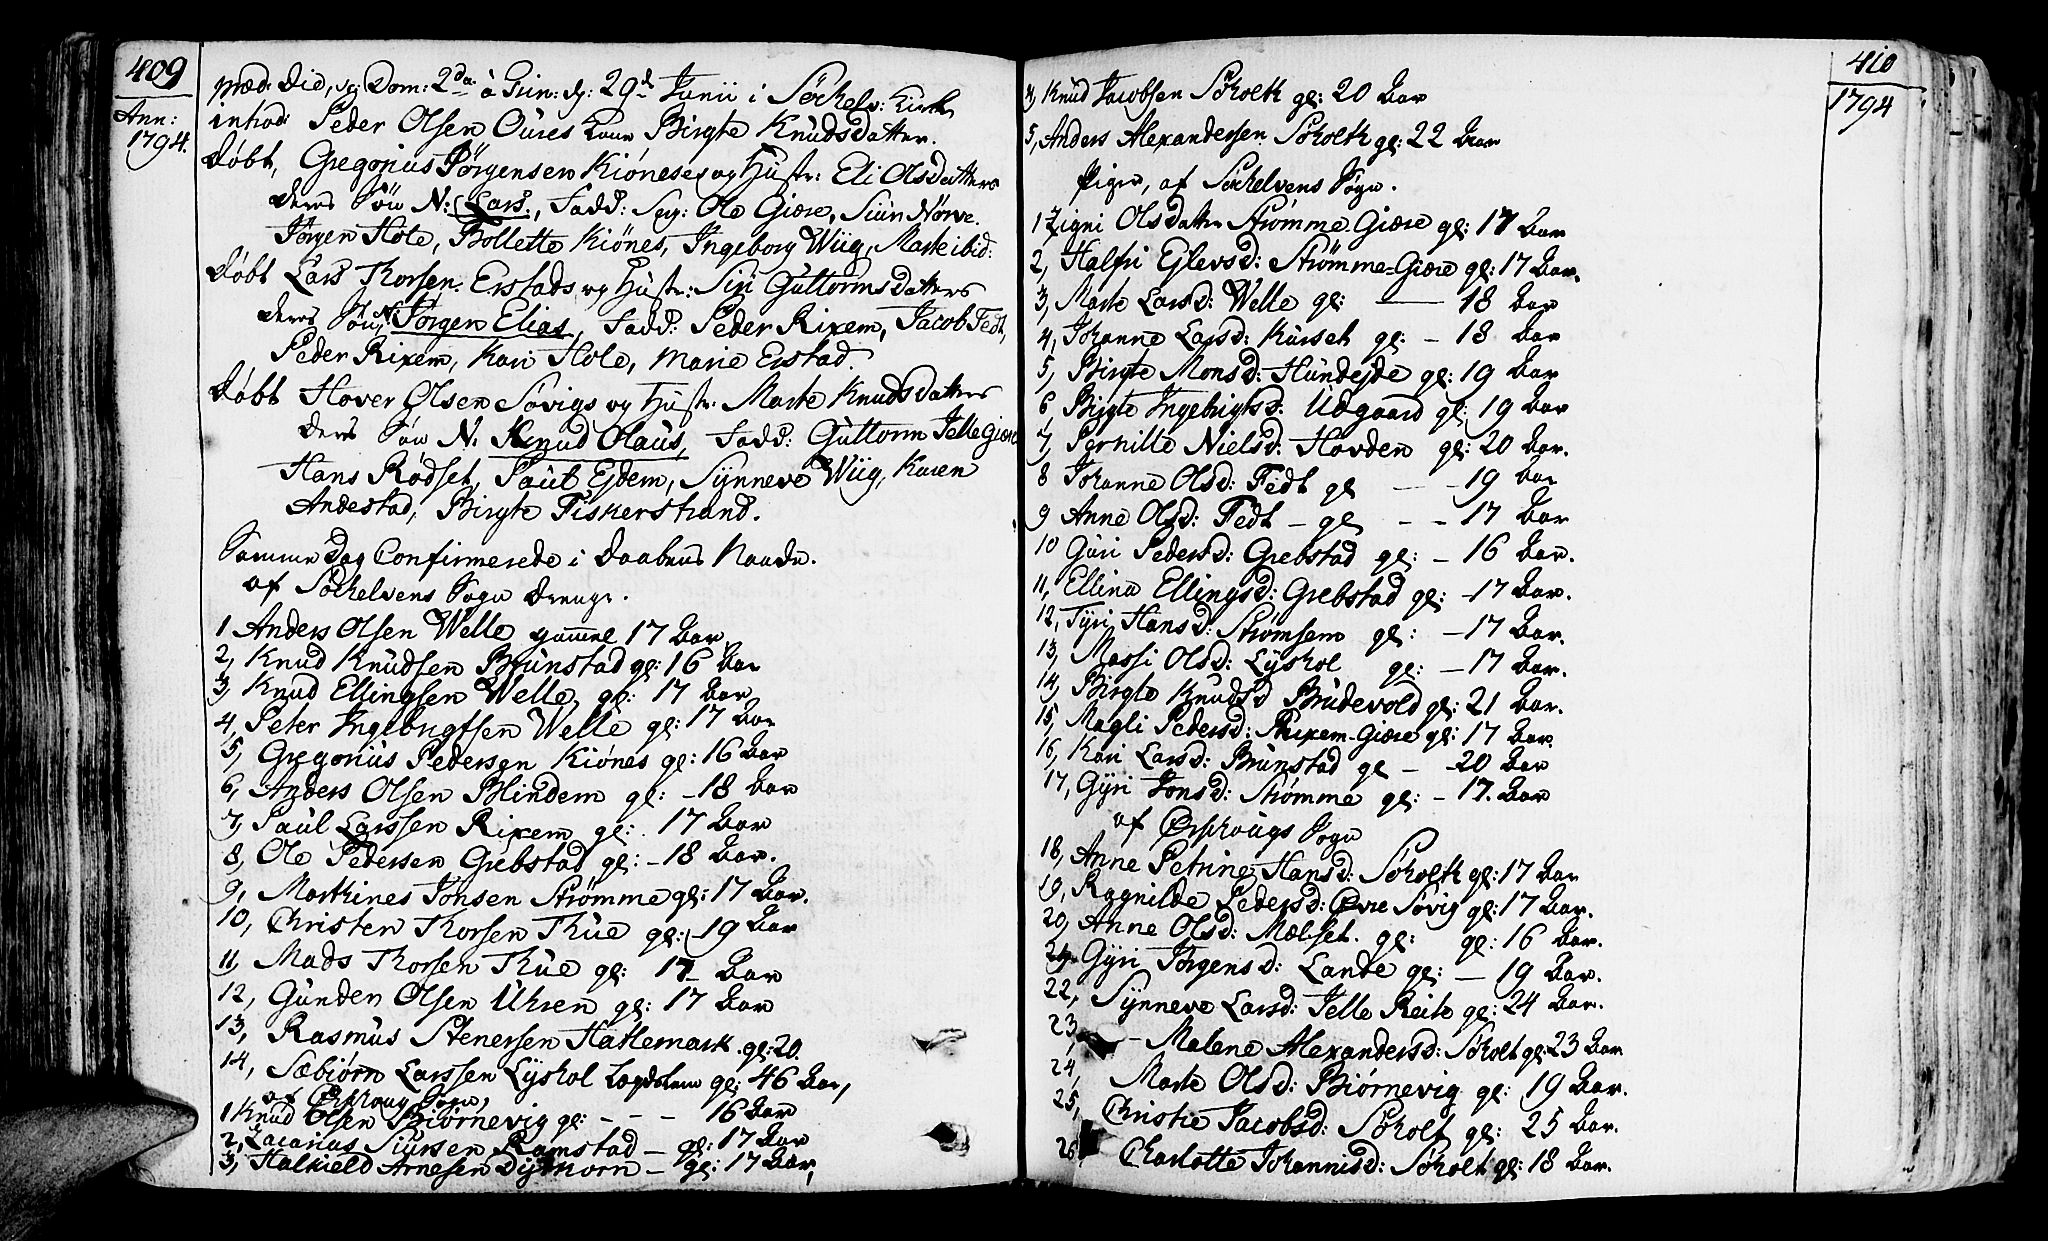 409
Ann:
1794.
Præd: Did, sc: Dom: 2da á Trin: d: 29d Junii i Söckelv: Kirke
introd: Peder Olsen Oures Kone Birgte Knudsdatter.
Døbt, Gregorius Jørgensen Kiönese og Hustr: Eli Olsdatters
deres Søn N: Lars, Fadd: Ole Giære, Siur Nørve.
Jørgen Hole, Bollette Kiönes, Ingeborg Wiig, Marte ibid:
Døbt Lars Thorsen Erstads og Hustr: Siri Guttormsdatters
deres Søn N: Jørgen Elias, Fadd: Peder Rixem, Jacob Fedt,
Peder Rixem, Kari Hole, Marie Erstad.
Døbt Hover Olsen Søvigs og Hustr: Marte Knudsdatters
deres Søn N: Knud Olaus, Fadd: Guttorm Jelle Giære
Hans Rødset, Paul Ejdem, Synneve Wiig, Karen
Andestad, Birgte Fiskerstrand.
Samme Dag Confirmerede i Daabens Naade.
af Söckelvens Sogn Drenge.
1 Anders Olsen Welle gammel 17 Aar
2, Knud Knudsen Brunstad gl: 16 Aar
3, Knud Ellingsen Welle gl: 17 Aar
4, Peter Ingebrigtsen Welle gl: 17 Aar
5, Gregorius Pedersen Kiönes gl: 16 Aar
6, Anders Olsen Blindem gl: - 18 Aar
7, Paul Larssen Rixem gl: 17 Aar
8, Ole Pedersen Grebstad gl: - 18 Aar.
9, Marthines Jonsen Strømme gl: 17 Aar.
10, Christen Thorsen Thue gl: 19 Aar
11, Mads Thorsen Thue gl: 17 Aar
12, Gunder Olsen Uhren gl: 17 Aar
13, Rasmus Stenersen Hatlemark gl: 20.
14, Sæbiørn Larssen Lyshol Lægdslem gl: 46 Aar,
af Ørschoug Sogn,
1 Knud Olsen Biørnevig gl: - - - 16 Aar
2, Zacarias Siursen Ramstad - gl: 17 Aar
3, Halkield Arnesen Dyrkorn - gl: 17 Aar,
410
1794
4, Knud Jacobsen Søholt gl: 20 Aar
5, Anders Alexandersen Søholt gl: 22 Aar
Piger, af Söckelvens Sogn.
1 Zigni Olsdatter Strømme Giære gl: 17 Aar
2, Halfri Ejlevsd: Strømme-Giære gl: 17 Aar.
3, Marte Larsd: Welle gl: — 18 Aar
4, Johanne Larsd: Kurset gl: - 18 Aar
5, Birgte Monsd: Hundejde gl: 19 Aar
6, Birgte Ingebrigtsd: Udgaard gl: 19 Aar
7, Pernille Nielsd: Hovden gl: 20 Aar.
8 Johanne Olsd: Fedt gl - - 19 Aar
9 Anne Olsd: Fedt - gl - - 17 Aar
10 Guri Pedersd: Grebstad gl: - 16 Aar.
11, Ellina Ellingsd: Grebstad gl: - 17 Aar.
12, Tyri Hansd: Strømsem gl: - 17 Aar.
13, Massi Olsd: Lyshol gl: - 17 Aar.
14, Birgte Knudsd Brudevold gl: 21 Aar.
15, Magli Pedersd: Rixem-Giære gl: 17 Aar.
16, Kari Larsd: Brunstad gl - 20 Aar
17, Gyri Jonsd: Strømme gl: - 17. Aar
af Ørschougs Sogn
18, Anne Petrine Hansd: Søholt gl: 17 Aar
19, Ragnilde Pedersd: Øvre Søvig gl: 17 Aar.
20, Anne Olsd: Mælset. gl: gl: 16 Aar.
21, Gyri Jørgensd: Lande gl: - 19 Aar.
22, Synneve Larsd: Jelle Reite gl: 24 Aar.
23, - Malene Alexandersd: Søholt gl: 23 Aar
24, Marte Olsd: Biørnevig gl: 19 Aar.
25, Christie Jacobsd: Søholt gl: 25 Aar.
26 Charlotte Johannisd: Søholt gl: 18 Aar.